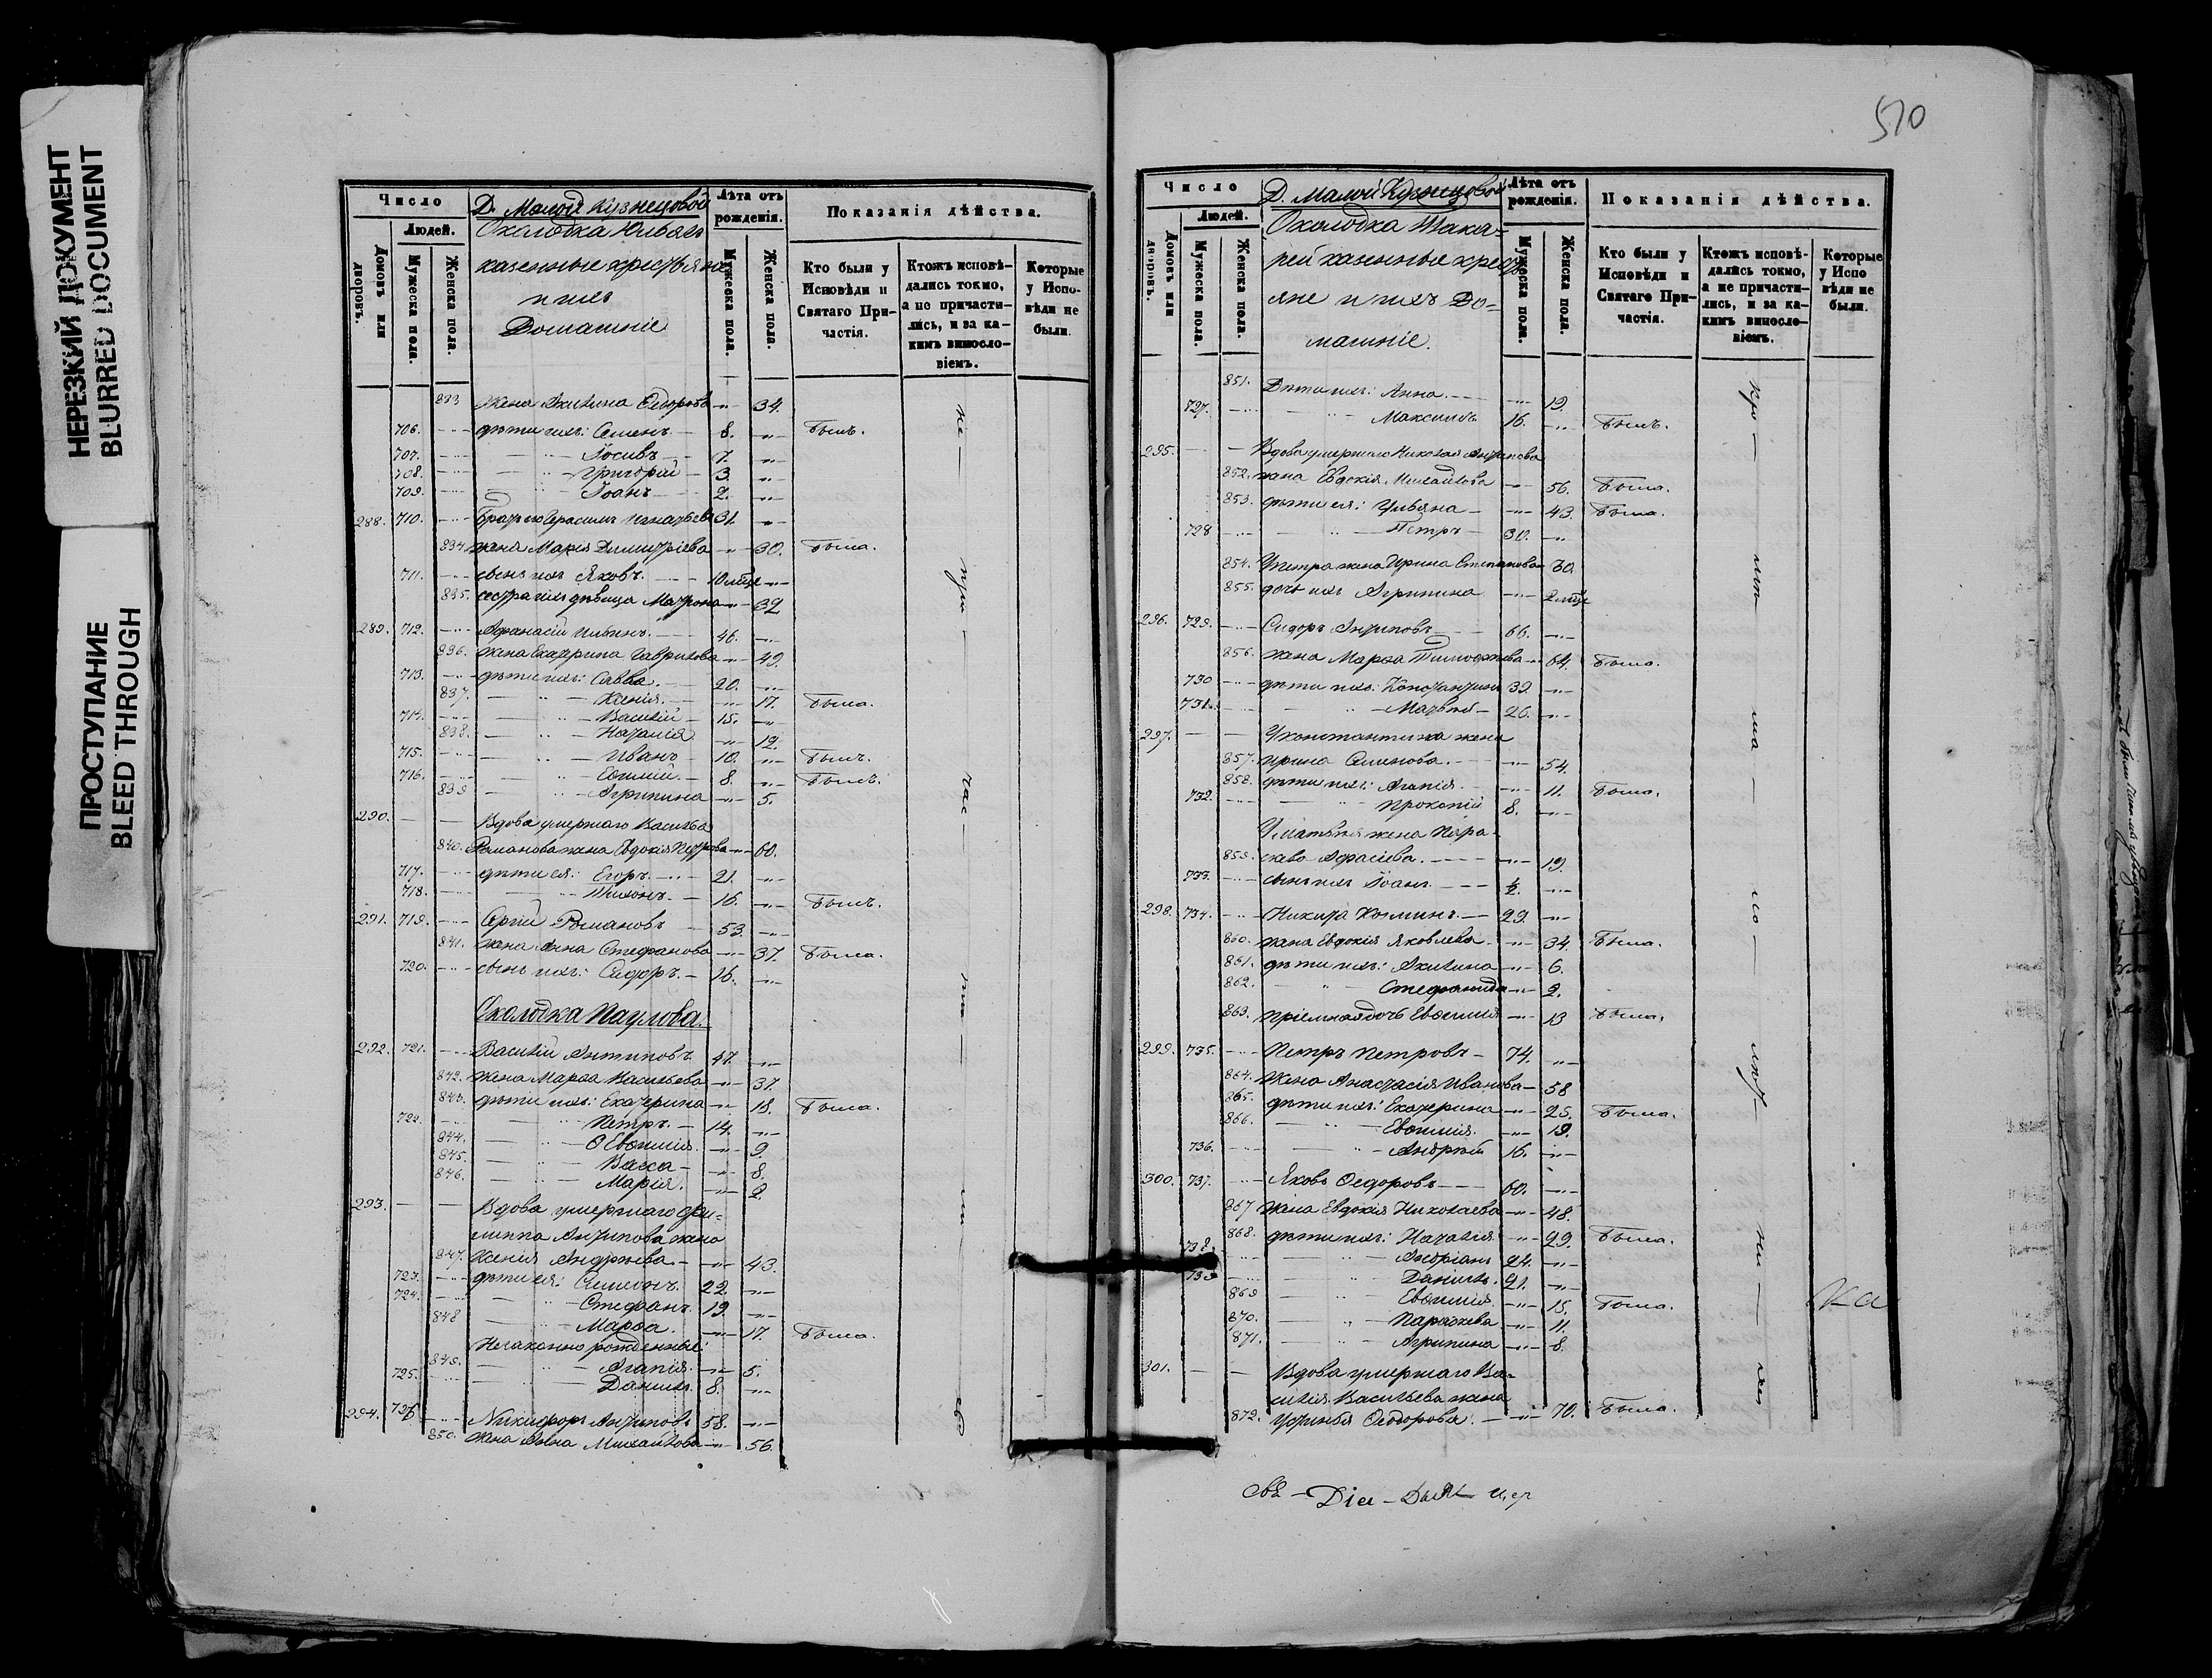 НЕРЕЗКИЙ ДОКУМЕНТ
BLURRED DOCUMENT
ПРОСТУПАНИЕ
BLEED THROUGH
Число
Людей.
Домовъ или дворовъ.
Мужеска пола.
Женска пола.
Д. Малой Кузнецовой
Околодка
казенные крестьяне
и ихъ
Домашніе
Лѣта отъ рожденія.
Мужеска пола.
Женска пола.
Показанія дѣйства.
Кто были у Исповѣди и Святаго Причастія.
Ктожъ исповѣдались токмо, а не причастились, и за какимъ винословіемъ.
Которые у Исповѣди не были.
833 жена Акилина 34.
706. дѣти ихъ: Семенъ 8. Былъ.
707. Іосивъ 7.
708. Григорій 3.
709. Іоанъ 2.
288. 710. Братъ его Герасимъ 31.
834. жена Марія Димитріева 30. Была.
711. сынъ ихъ Яковъ. 10 мѣс.
835. сестра ихъ дѣвица Матрона 32
289. 712. Афанасій Ильинъ. 46.
836. жена Екатерина Гаврилова 49.
713. дѣти ихъ: Савва. 20.
837. Ксенія. 17. Была.
714. Василій 15.
838. Наталія 12.
715. Иванъ 10. Былъ.
716. Евѳимій 8. Былъ.
839 Агрипина 5.
290. Вдова умершаго Василья
840. Романова жена Евдокія Петрова 60.
717. дѣти ея: Егоръ 21.
718. Тихонъ. 16. Былъ.
291. 719. Сергій Романовъ 53.
841. жена Анна Стефанова 37. Была.
720. сынъ ихъ: Сидоръ. 16.
Околодка Паулова.
292. 721. Василій Антиповъ. 47.
842. жена Марѳа Васильева 37.
843. дѣти ихъ: Екатерина 18. Была.
722. Петръ. 14.
844. Евѳимія. 9.
845. Васса 8.
846. Марія. 2.
293. Вдова умершаго Фи-
липпа Антипова жена
847. Ксенія Андреева. 43.
723. дѣти ея: Симеонъ. 22.
724. Стефанъ. 19.
848 Марѳа. 17. Была.
Незаконно рожденные:
849. Агапія. 5.
725. Данилъ. 8.
294. 726 Никифоръ Антиповъ 58.
850. жена Анна Михайлова 56.
510
Число
Людей.
Домовъ или дворовъ.
Мужеска пола.
Женска пола.
Д. Малой Кузнецовой
Околодка Шака-
рей казенные кресть-
яне и ихъ До-
машніе.
Лѣта отъ рожденія.
Мужеска пола.
Женска пола.
Показанія дѣйства.
Кто были у Исповѣди и Святаго Причастія.
Ктожъ исповѣдались токмо, а не причастились, и за какимъ винословіемъ.
Которые у Исповѣди не были.
851. Дѣти ихъ: Анна. 19.
727. Максимъ 16. Былъ.
295. Вдова умершаго Николая Антипова
852. жена Евдокія Михайлова 56. Была.
853. дѣти ея: Ульяна 43. Была.
728 Петръ 30.
854. У Петра жена Ирина Степанова 30.
855. дочь ихъ Агрипина 2 мѣс.
296. 729. Сидоръ Антиповъ 66.
856. жена Марѳа Тимоѳеева 64. Была.
730 дѣти ихъ: Константинъ 39.
731. Матвѣй 26.
297. У Константина жена
857. Ирина Семенова. 54.
858. дѣти ихъ: Агапія 11. Была.
732. Прокопій 8.
У Матвѣя жена Пара-
859. скева 19.
733. сынъ ихъ Іоанъ ½.
298. 734. Никита Козминъ. 29.
860. жена Евдокія Яковлева. 34. Была.
861. дѣти ихъ: Акилина 6.
862. Стефанида 2.
863. пріемная дочь Евѳимія 13 Была.
299. 735. Петръ Петровъ 74.
864. Жена Анастасія Иванова 58
865. дѣти ихъ: Екатерина 25. Была.
866. Евѳимія 19.
736. Андрей 16.
300. 737. Яковъ Ѳедоровъ 60.
867 жена Евдокія Николаева 48.
868. дѣти ихъ: Наталія 29. Была.
738. Андріанъ 24.
739 Данилъ. 21.
869 Евѳимія 15. Была.
870. Параскева 11.
871. Агрипина 8.
301. Вдова умершаго Ва-
силія Васильева жена
872. Устинья Ѳедорова. 70. Была.